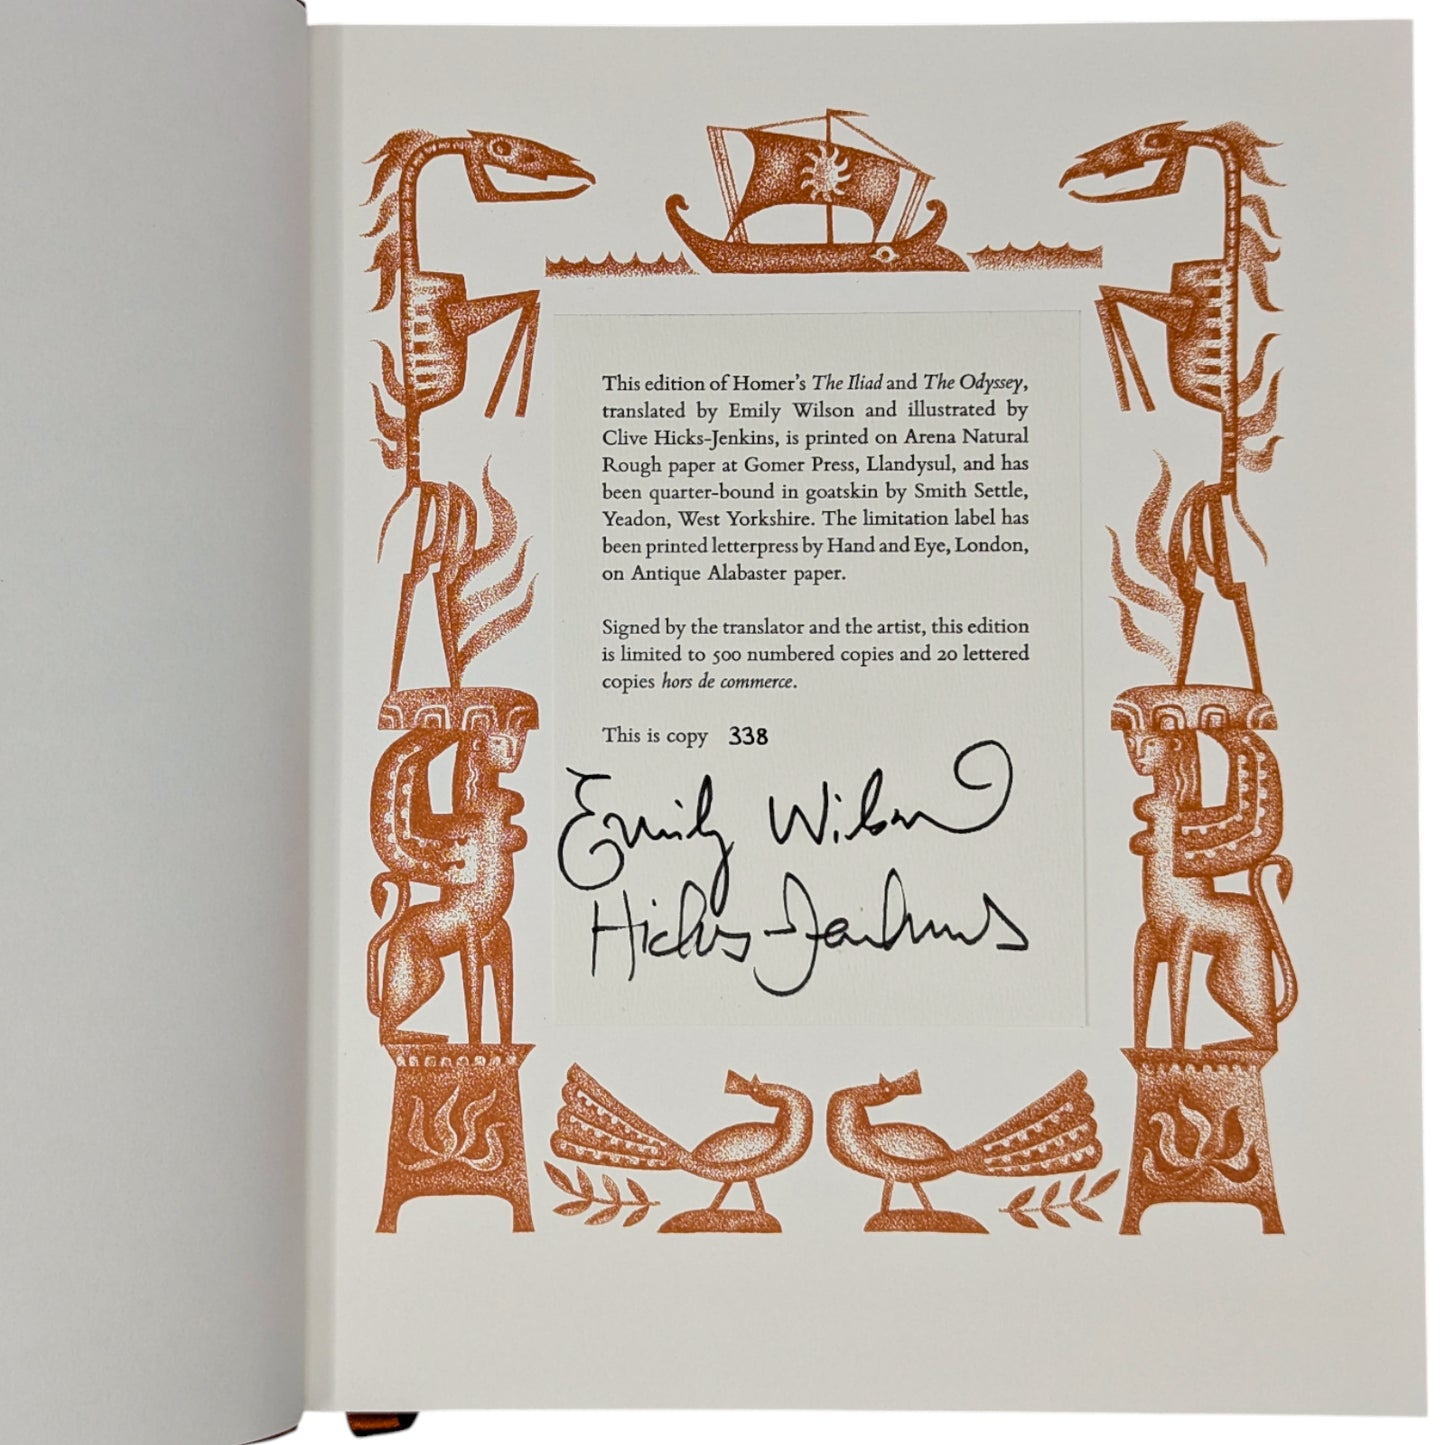 This edition of Homer's The Iliad and The Odyssey,
translated by Emily Wilson and illustrated by
Clive Hicks-Jenkins, is printed on Arena Natural
Rough paper at Gomer Press, Llandysul, and has
been quarter-bound in goatskin by Smith Settle,
Yeadon, West Yorkshire. The limitation label has
been printed letterpress by Hand and Eye, London,
on Antique Alabaster paper.
Signed by the translator and the artist, this edition
is limited to 500 numbered copies and 20 lettered
copies hors de commerce.
This is copy 338
Emily Wilson
Hicks-Jenkins